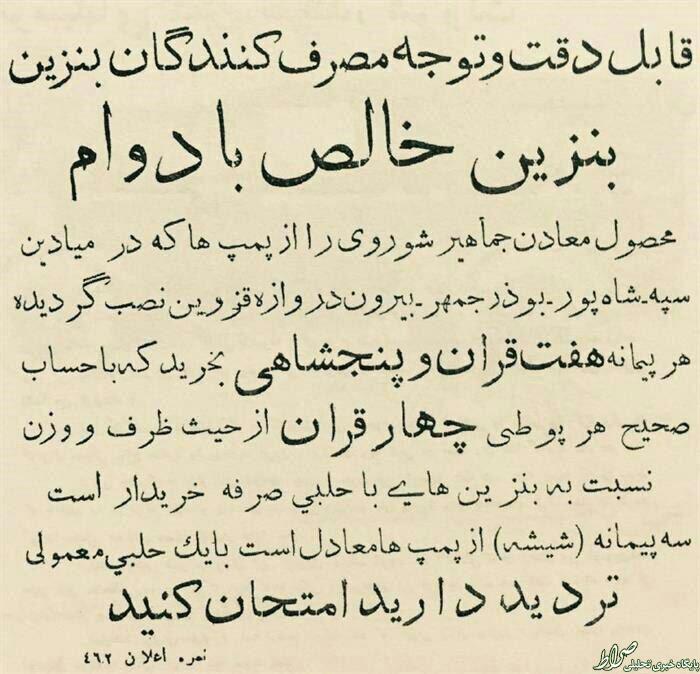 قابل دقت و توجه مصرف کنندگان بنزین
بنزین خالص با دوام
محصول معادن جمأهیر شوروی را از پمپ ها که در میادین
سپه-شاه پور-بوذرجمهر-بیرون دروازه قزوین نصب گردیده
هر پیمانه هفت قران و پنجشاهی بخرید که با حساب
صحیح هر پوطی چهار قران از حیث ظرف و وزن
نسبت به بنزین هایے با حلبي صرفه خریدار است
سه پیمانه (شیشه) از پمپ ها معادل است با یك حلبي معمولی
تردید دارید امتحان کنید
نمره اعلان ٤٦٢
صراط
پایگاه خبری تحلیلی